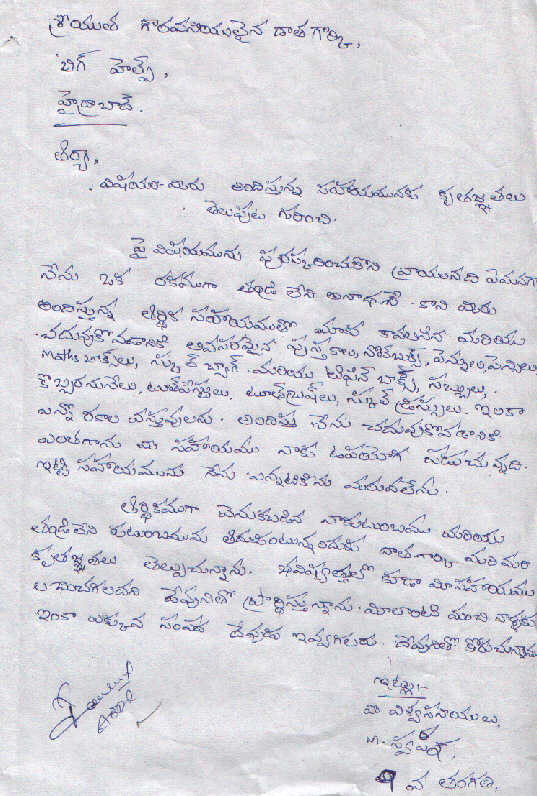 శ్రీయుత గౌరవనీయులైన దాత గార్కి,
బిగ్ హెల్ప్,
హైద్రాబాద్.
ఆర్యా,
విషయం:- మీరు అందిస్తున్న సహాయమునకు కృతజ్ఞతలు
తెలుపుట గురించి.
పై విషయమును పురస్కరించుకొని వ్రాయునది ఏమనగా
నేను ఒక రకముగా తండ్రి లేని అనాథనే. కాని మీరు
అందిస్తున్న ఆర్థిక సహాయముతో మాకు కావలసిన మరియు
చదువుకోవడానికి అవసరమైన పుస్తకాలు, నోట్‌బుక్స్, పెన్నులు, పెన్సిలు
Maths బాక్సులు, స్కూల్ బ్యాగ్. మరియు టిఫిన్ బాక్స్, సబ్బులు,
కొబ్బరినూనెలు, టూత్‌పేస్టులు, టూత్‌బ్రష్‌లు, స్కూల్ డ్రెస్సులు. ఇంకా
ఎన్నో రకాల వస్తువులను. అందిస్తే నేను చదువుకోవడానికి
ఎంతగానో మీ సహాయము నాకు ఉపయోగ పడుచున్నది.
ఇట్టి సహాయమును నేను ఎన్నటికిని మరువలేను.
ఆర్థికముగా వెనుకబడిన నా కుటుంబము మరియు
తండ్రిలేని కుటుంబమును ఆదుకుంటున్నందుకు దాతగార్కి మరిమరి
కృతజ్ఞతలు తెల్పుచున్నాను. భవిష్యత్తులో కూడా మీ సహాయము
లభించగలదని దేవునితో ప్రార్థిస్తున్నాను. మీలాంటి మంచి వాళ్లకు
ఇంకా ఎక్కువ సంపద దేవుడు ఇవ్వగలరు. దేవునితో కోరుచున్నాను
ఇట్లు:-
మీ విశ్వసనీయులు,
M. స్వప్న,
9 వ తరగతి.